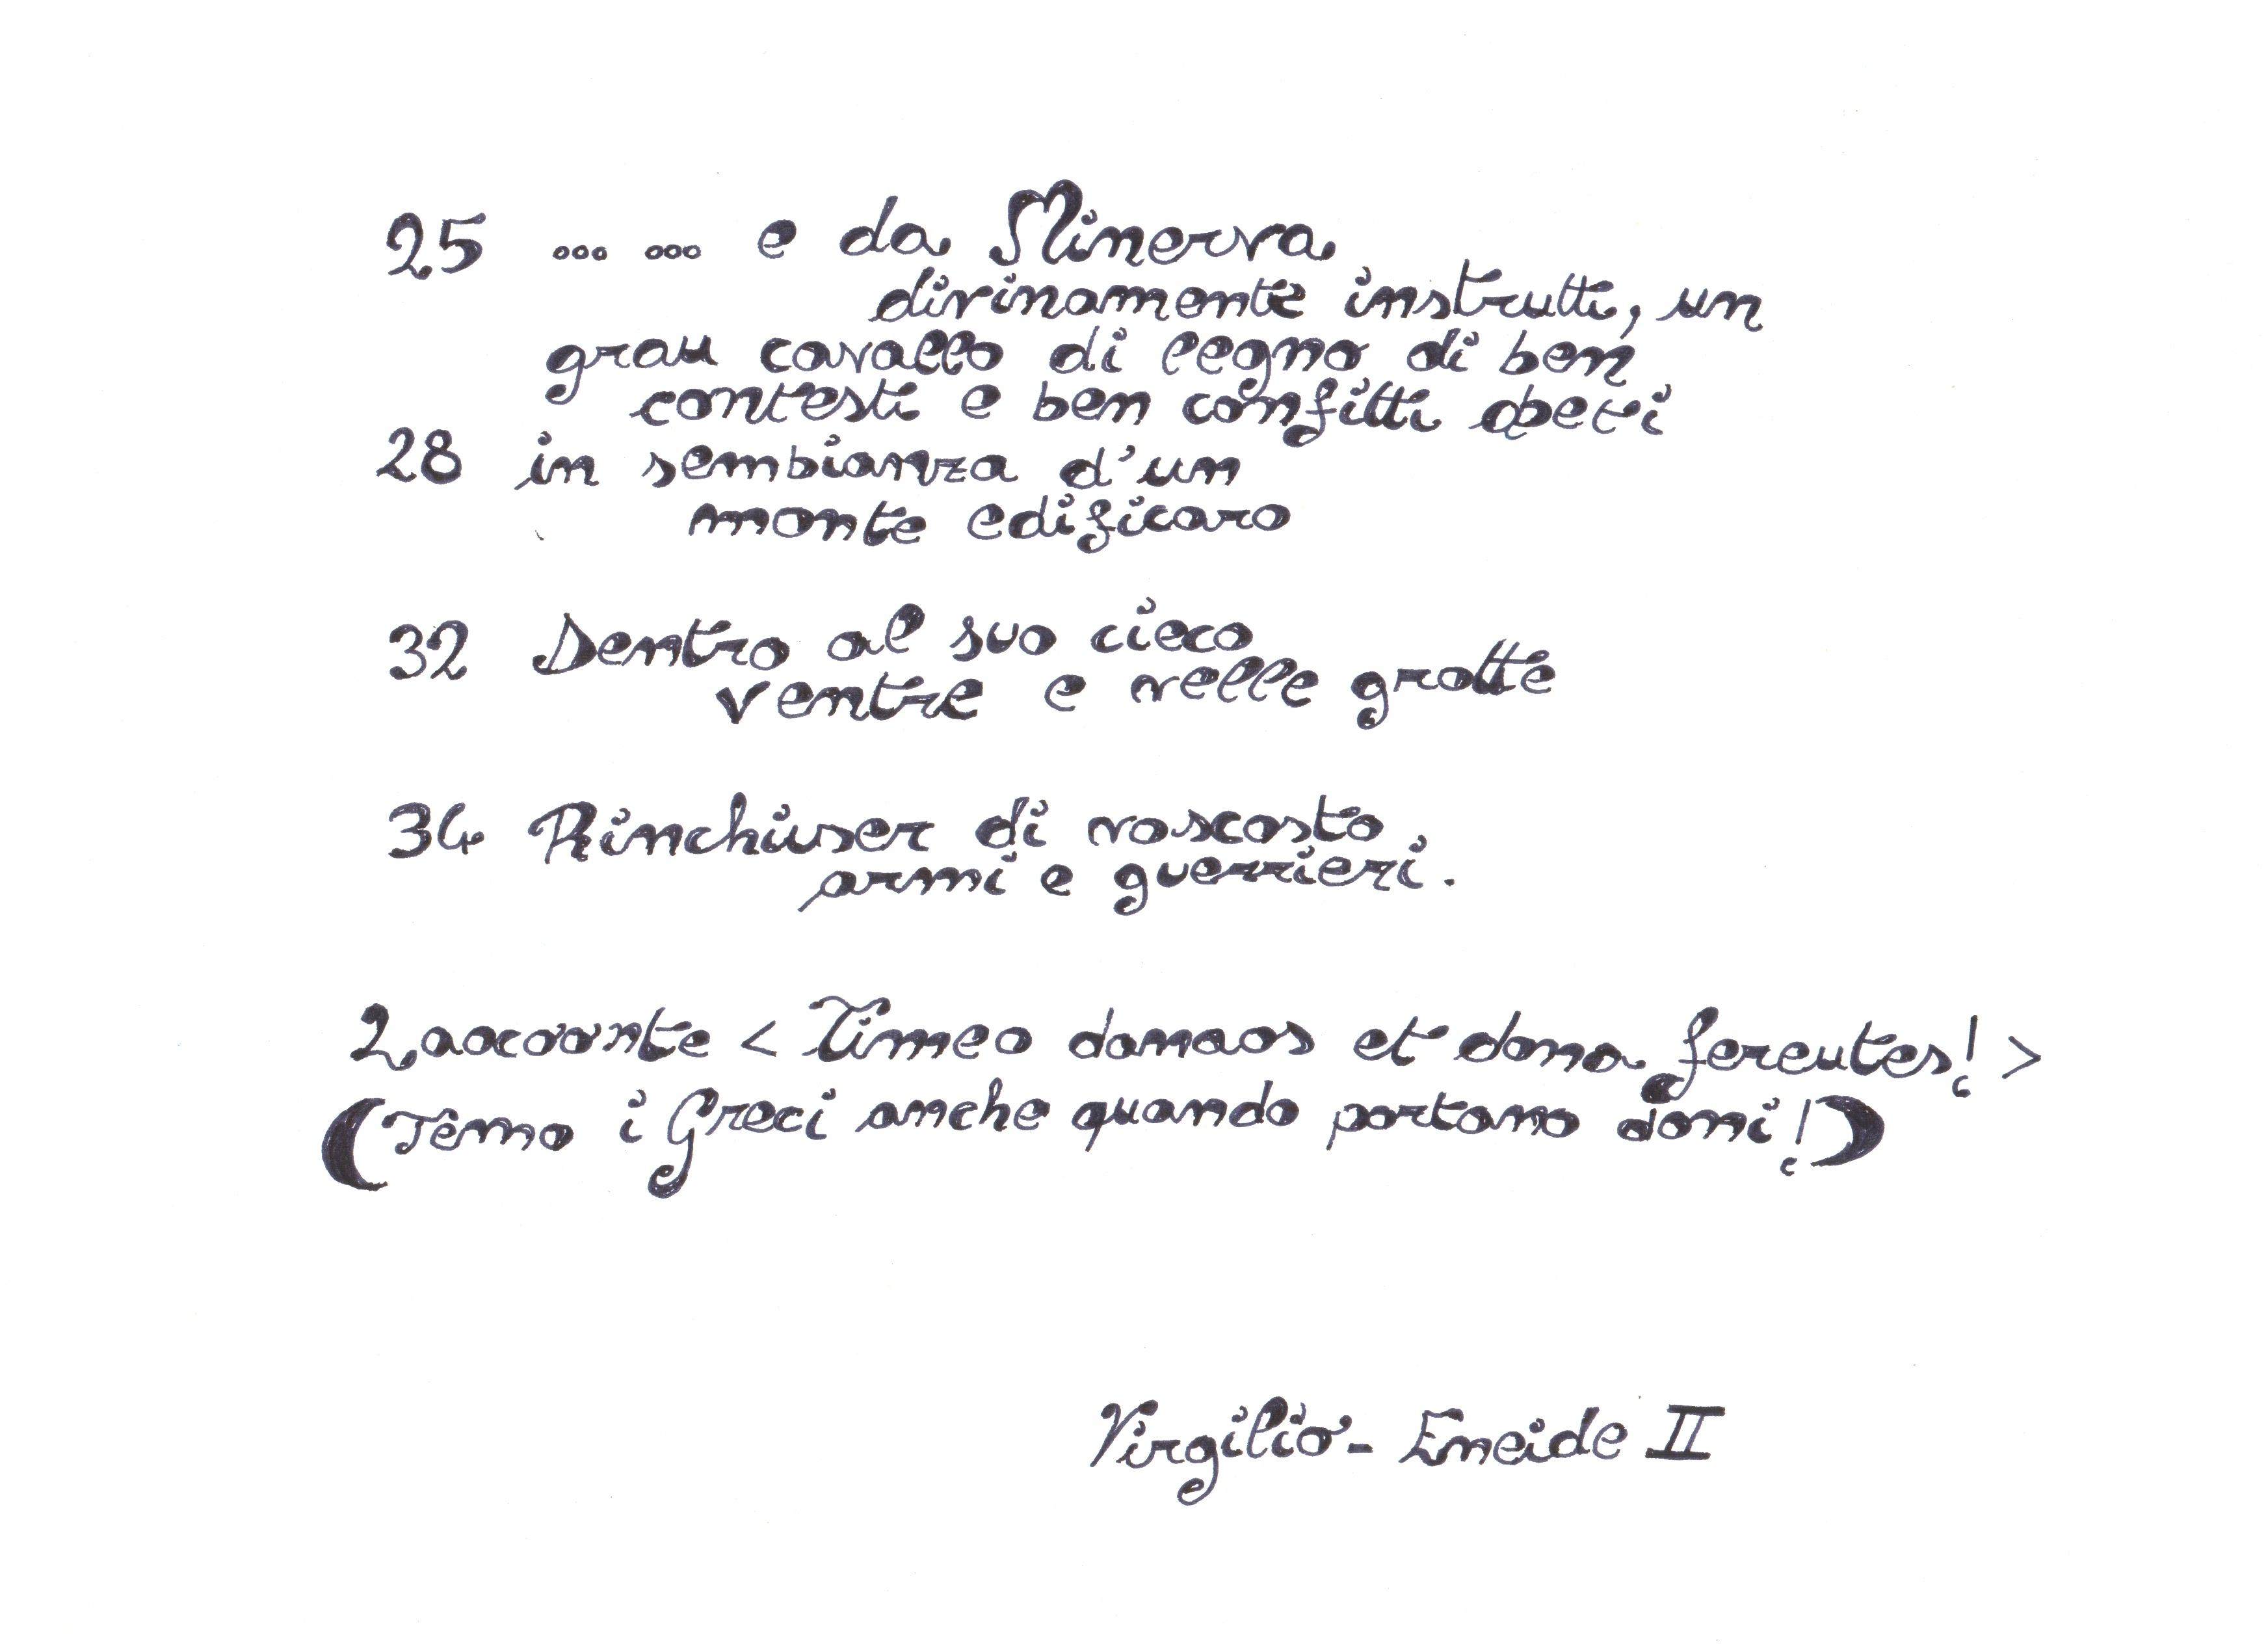 25 ... ... e da Minerva
divinamente instrutti, un
gran cavallo di legno di ben
contesti e ben confitti abeti
28 in sembianza d'un
monte edificaro
32 Dentro al suo cieco
ventre e nelle grotte
34 Rinchiuser di noscosto
armi e guerrieri.
Laocoonte < Timeo danaos et dona ferentes! >
(Temo i Greci anche quando portano doni!)
Virgilio - Eneide II